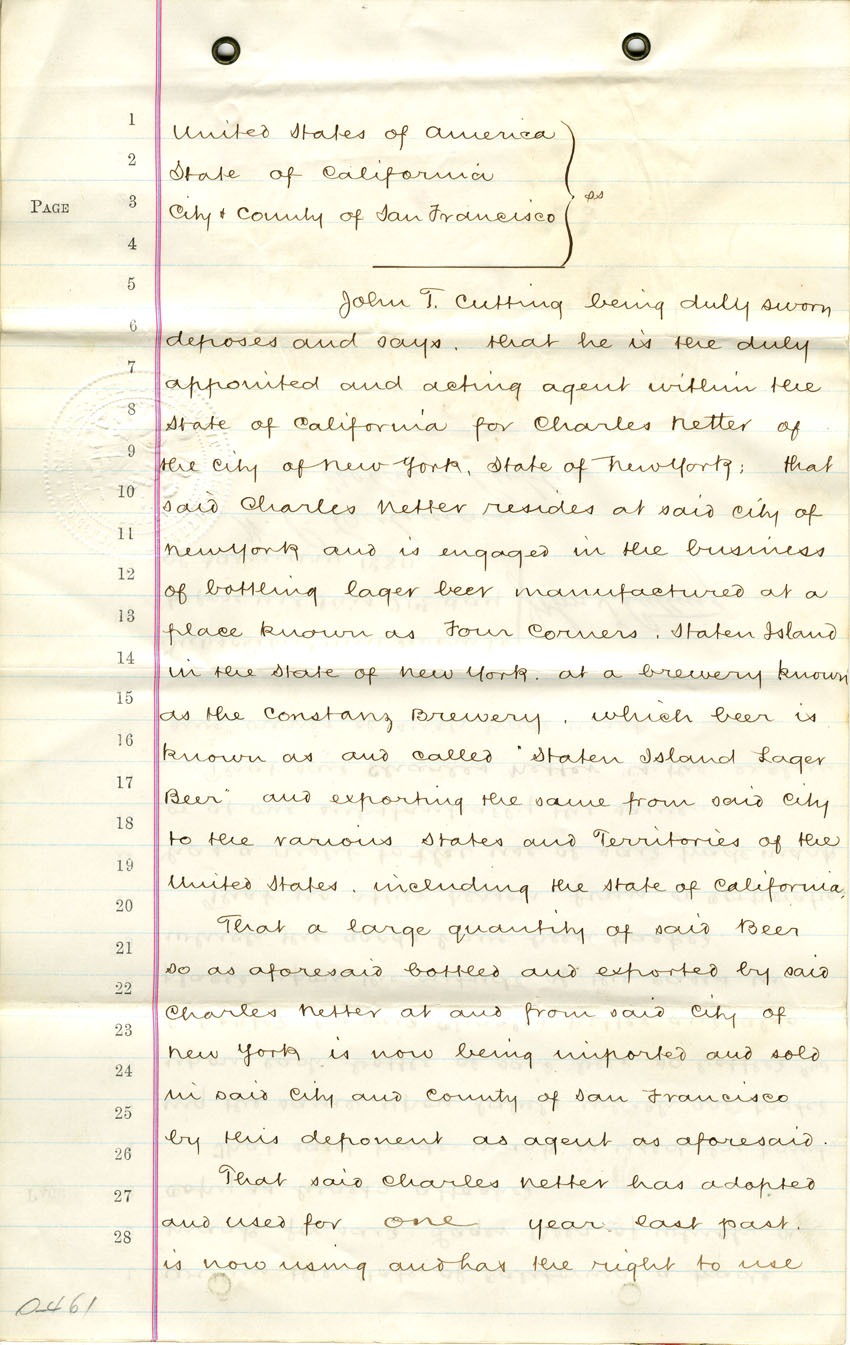 1
United States of America
2
State of California
PAGE
3
City & County of San Francisco
ss
4
5
John T. Cutting being duly sworn
6
deposes and says, that he is the duly
7
appointed and acting agent within the
8
State of California for Charles Netter of
9
the City of New York, State of New York; that
10
said Charles Netter resides at said city of
11
New York and is engaged in the business
12
of bottling lager beer manufactured at a
13
place known as Four Corners, Staten Island
14
in the State of New York. at a brewery known
15
as the Constanz Brewery, which beer is
16
known as and called "Staten Island Lager
17
Beer" and exporting the same from said City
18
to the various States and Territories of the
19
United States, including the State of California,
20
That a large quantity of said Beer
21
so as aforesaid bottled and exported by said
22
Charles Netter at and from said City of
23
New York is now being imported and sold
24
in said City and County of San Francisco
25
by this deponent as agent as aforesaid.
26
That said Charles Netter has adopted
27
and used for one year last past,
28
is now using and has the right to use
D-461